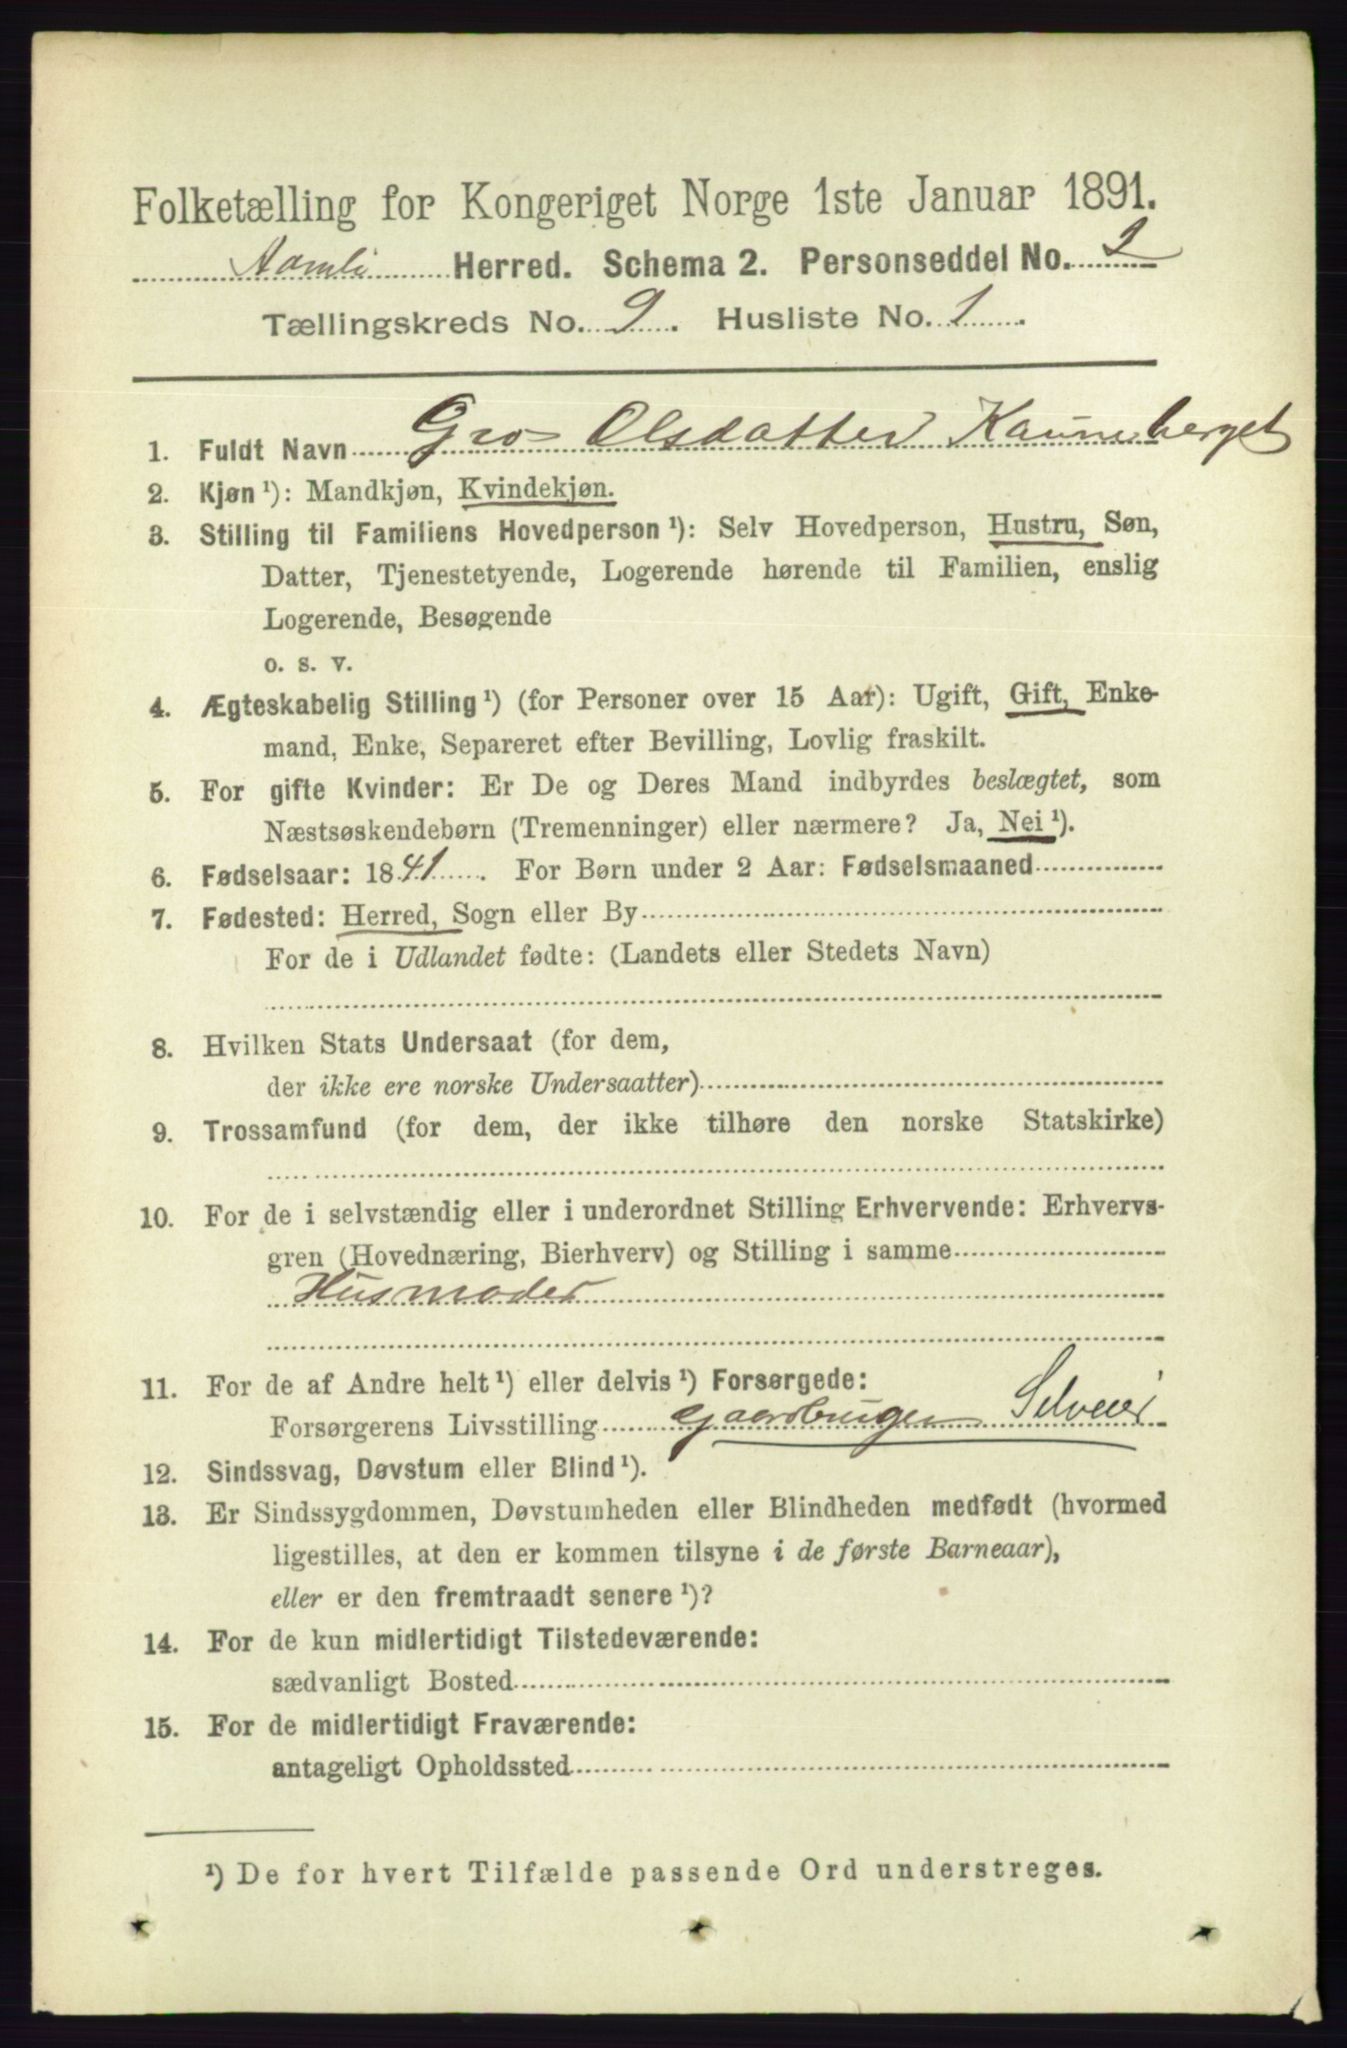 Folketælling for Kongeriget Norge 1ste Januar 1891.
Aamli Herred. Schema 2. Personseddel No. 2
Tællingskreds No. 9. Husliste No. 1.
1. Fuldt Navn Gro Olsdatter Kauneberget
2. Kjøn ¹): Mandkjøn, Kvindekjøn.
3. Stilling til Familiens Hovedperson ¹): Selv Hovedperson, Hustru, Søn,
Datter, Tjenestetyende, Logerende hørende til Familien, enslig
Logerende, Besøgende
o. s. v.
4. Ægteskabelig Stilling ¹) (for Personer over 15 Aar): Ugift, Gift, Enke-
mand, Enke, Separeret efter Bevilling, Lovlig fraskilt.
5. For gifte Kvinder: Er De og Deres Mand indbyrdes beslægtet, som
Næstsøskendebørn (Tremenninger) eller nærmere? Ja, Nei ¹).
6. Fødselsaar: 1841. For Børn under 2 Aar: Fødselsmaaned
7. Fødested: Herred, Sogn eller By
For de i Udlandet fødte: (Landets eller Stedets Navn)
8. Hvilken Stats Undersaat (for dem,
der ikke ere norske Undersaatter)
9. Trossamfund (for dem, der ikke tilhøre den norske Statskirke)
10. For de i selvstændig eller i underordnet Stilling Erhvervende: Erhvervs-
gren (Hovednæring, Bierhverv) og Stilling i samme
Husmoder
11. For de af Andre helt ¹) eller delvis ¹) Forsørgede:
Forsørgerens Livsstilling gaardbruger Selveier
12. Sindssvag, Døvstum eller Blind ¹).
13. Er Sindssygdommen, Døvstumheden eller Blindheden medfødt (hvormed
ligestilles, at den er kommen tilsyne i de første Barneaar),
eller er den fremtraadt senere ¹)?
14. For de kun midlertidigt Tilstedeværende:
sædvanligt Bosted
15. For de midlertidigt Fraværende:
antageligt Opholdssted
¹) De for hvert Tilfælde passende Ord understreges.